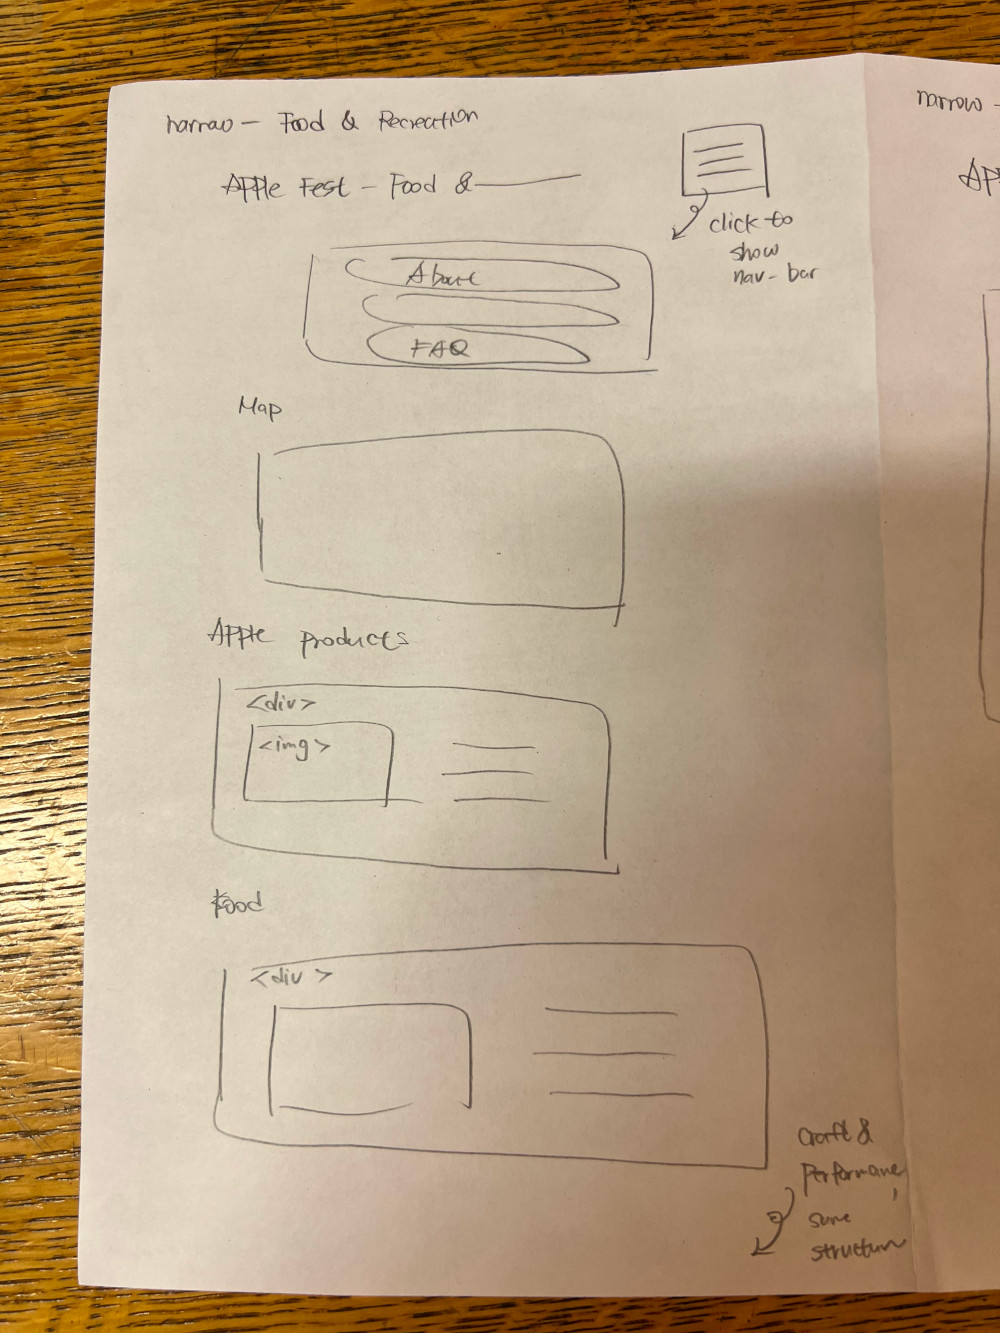 narrow - Food & Recreation
Apple Fest - Food &
click to
show
nav-bar
About
FAQ
Map
Apple products
<div>
<img>
Food
<div>
Craft &
Performance,
same
structure
narrow -